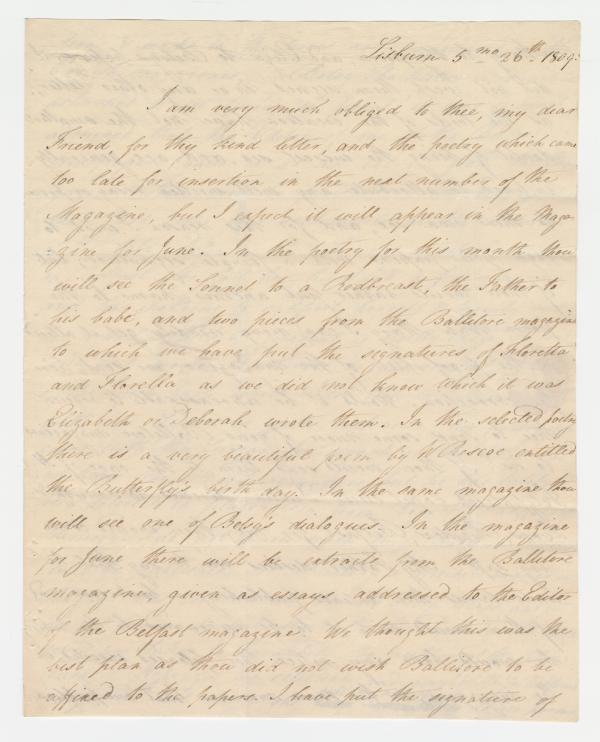 Lisburn 5 mo 26th 1809:
I am very much obliged to thee, my dear
Friend, for thy kind letter, and the poetry which came
too late for insertion in the next number of the
Magazine, but I expect it will appear in the Maga-
:zine for June. In the poetry for this month thou
will see the Sonnet to a Redbreast, the Father to
his babe, and two pieces from the Ballitore magazine
to which we have put the signatures of Floretta
and Florella as we did not know which it was
Elizabeth or Deborah wrote them. In the selected poetry
there is a very beautiful poem by W Roscoe entitled
the Butterfly's birth day. In the same magazine thou
will see one of Betsy's dialogues. In the magazine
for June there will be extracts from the Ballitore
magazine, given as essays addressed to the Editor
of the Belfast magazine. We thought this was the
best plan as thou did not wish Ballitore to be
affixed to the papers. I have put the signature of